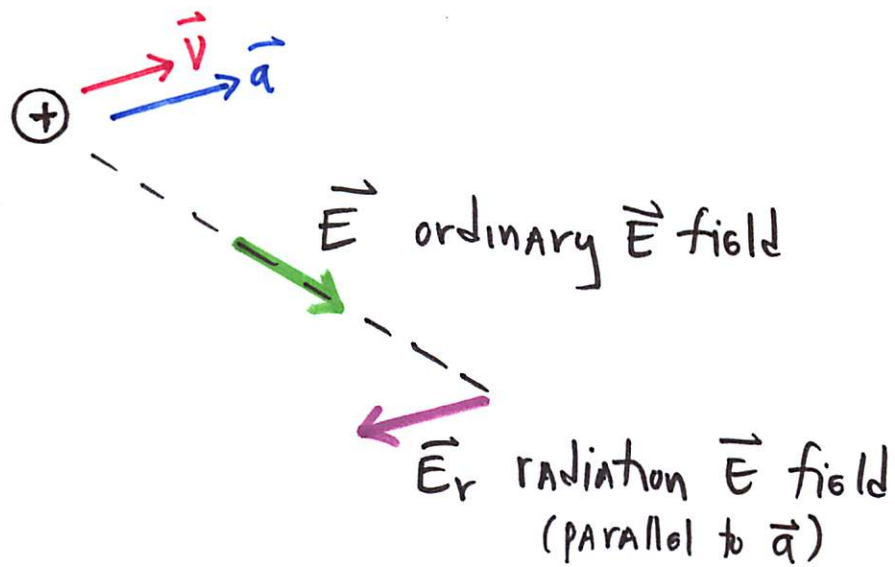 +
V⃗
a⃗
E⃗ ordinary E⃗ field
E⃗r radiation E⃗ field
(parallel to a⃗)